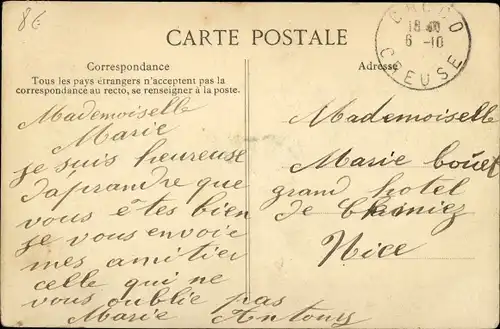 8€
CARTE POSTALE
CROCQ
18 40
6 -10
CREUSE
Correspondance
Tous les pays étrangers n'acceptent pas la
correspondance au recto, se renseigner à la poste.
Adresse
Mademoiselle
Marie
je suis heureuse
d'aprandre que
vous êtes bien
je vous envoie
mes amitier
celle qui ne
vous oublie pas
Marie Antony
Mademoiselle
Marie bouët
grand hotel
de
Nice